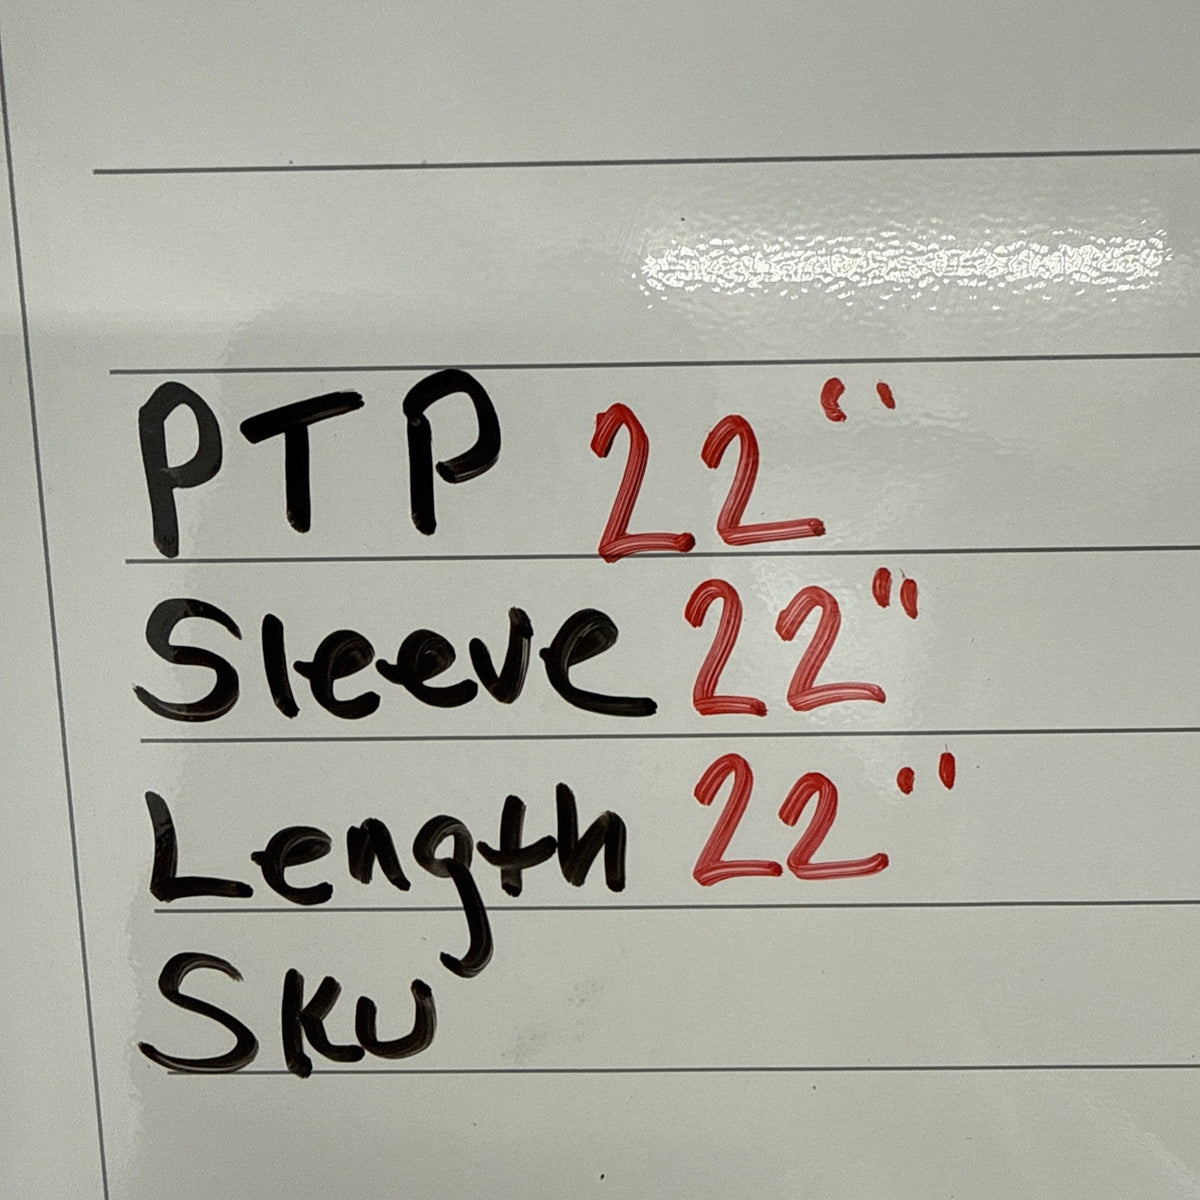 PTP 22"
Sleeve 22"
Length 22"
SKU